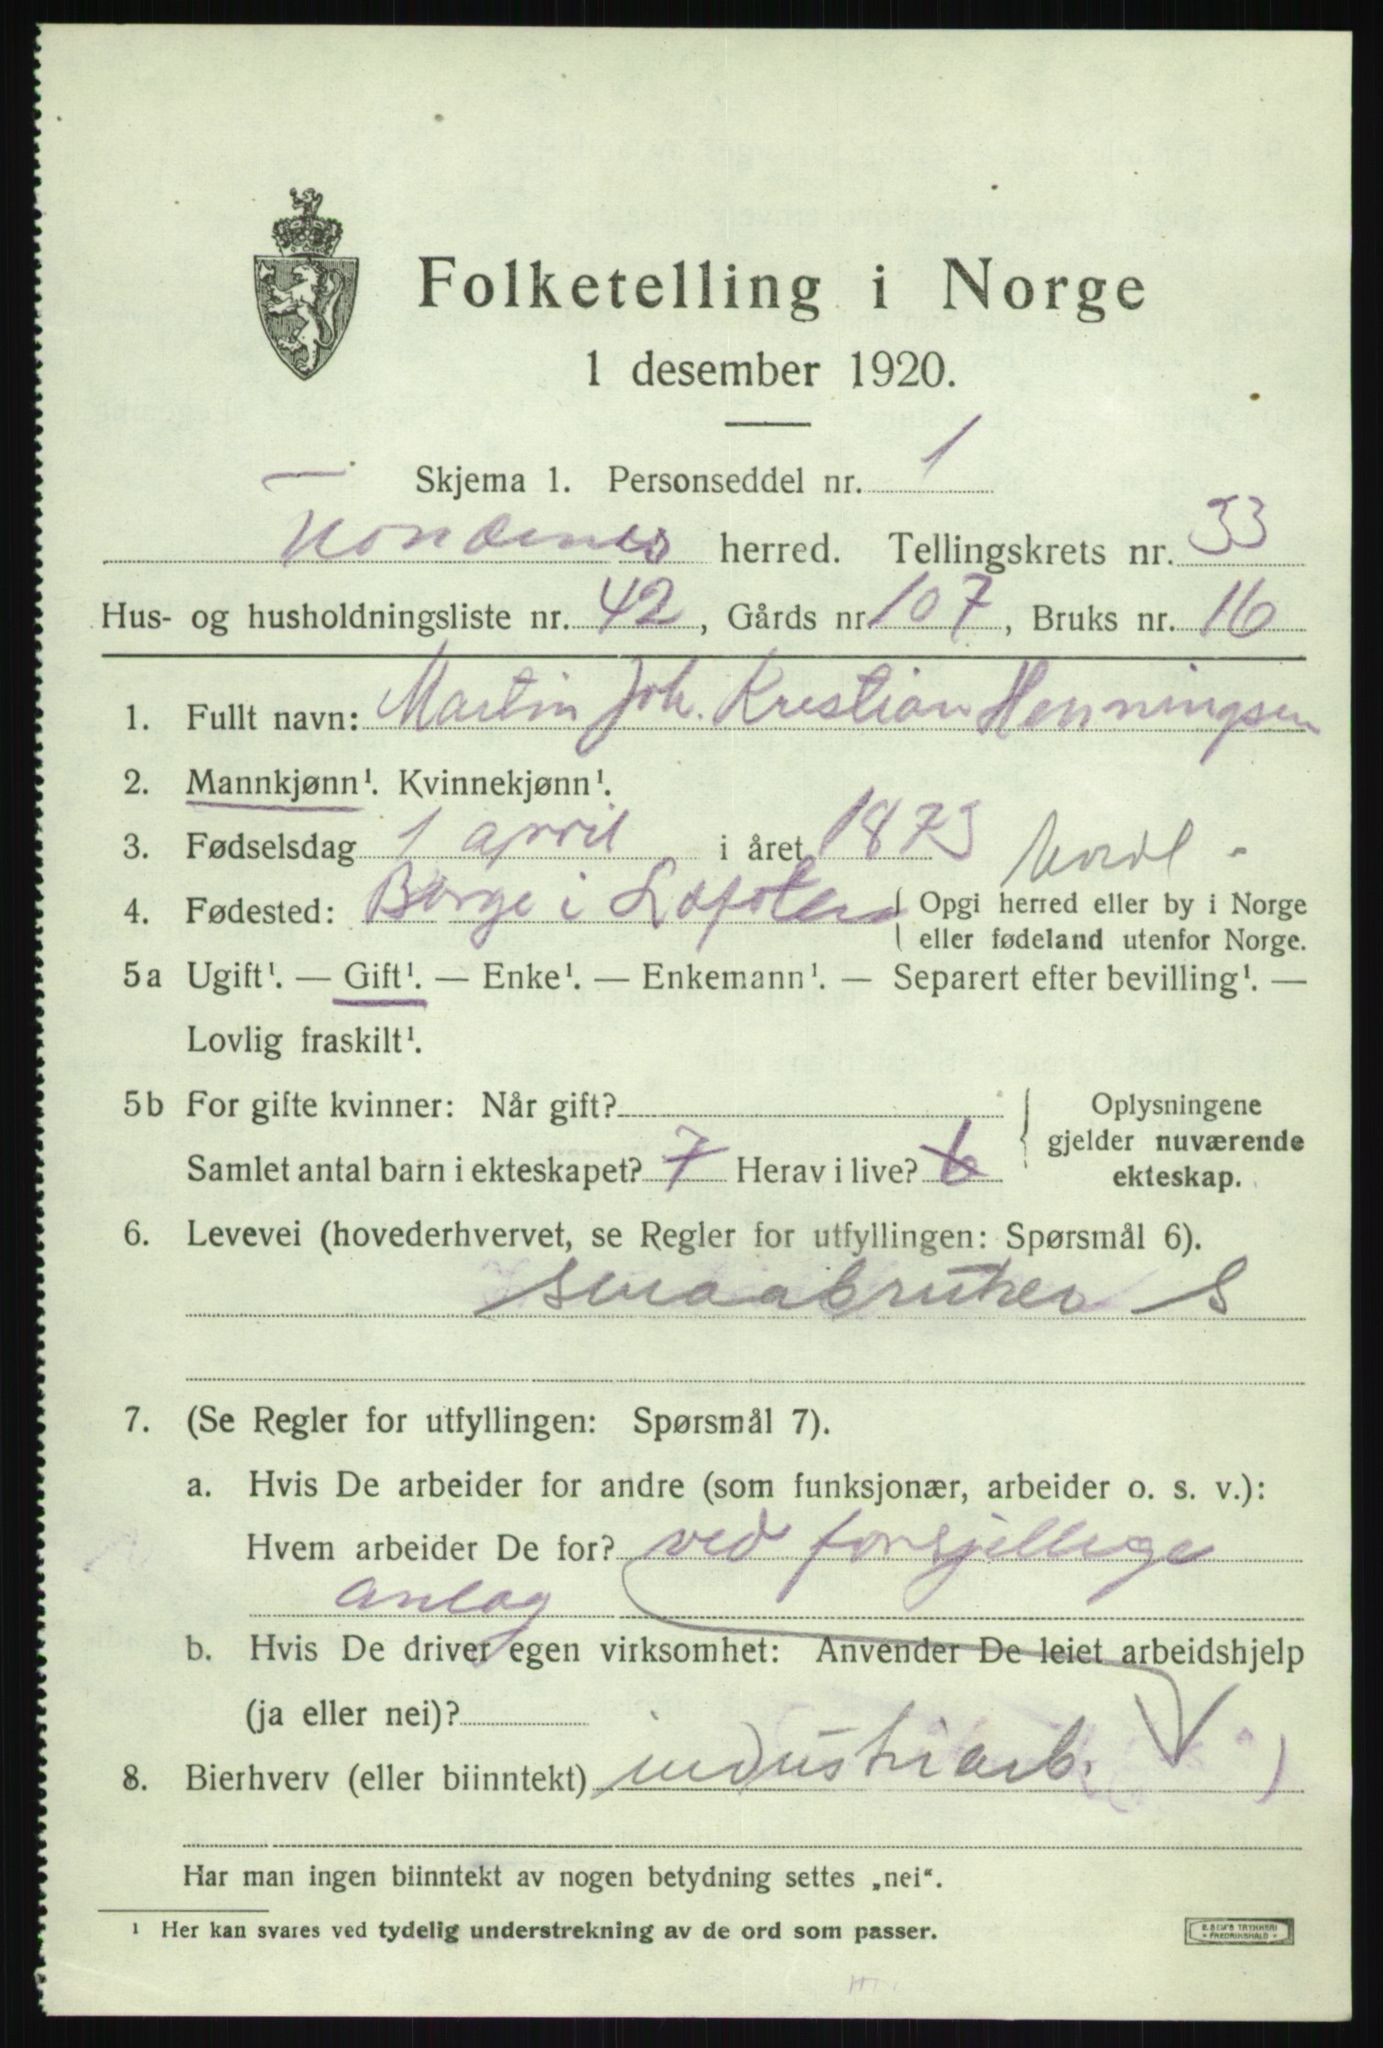 Folketelling i Norge
1 desember 1920.
Skjema 1. Personseddel nr. 1
Trondenes herred. Tellingskrets nr. 33
Hus- og husholdningsliste nr. 42, Gårds nr 107, Bruks nr. 16
1. Fullt navn: Martin Joh. Kristian Henningsen
2. Mannkjønn¹. Kvinnekjønn¹.
3. Fødselsdag 1 april i året 1873
Nordl
4. Fødested: Borge i Lofoten { Opgi herred eller by i Norge
eller fødeland utenfor Norge.
5a Ugift¹. — Gift¹. — Enke¹. — Enkemann¹. — Separert efter bevilling¹. —
Lovlig fraskilt¹.
5b For gifte kvinner: Når gift? } Oplysningene
gjelder nuværende
Samlet antal barn i ekteskapet? 7 Herav i live? 6
ekteskap.
6. Levevei (hovederhvervet, se Regler for utfyllingen: Spørsmål 6).
smaabruker S
7. (Se Regler for utfyllingen: Spørsmål 7).
a. Hvis De arbeider for andre (som funksjonær, arbeider o. s. v.):
Hvem arbeider De for? ved forsjellige
anlag
b. Hvis De driver egen virksomhet: Anvender De leiet arbeidshjelp
(ja eller nei)?
8. Bierhverv (eller biinntekt) industriarb.
Har man ingen biinntekt av nogen betydning settes „nei“.
¹ Her kan svares ved tydelig understrekning av de ord som passer.